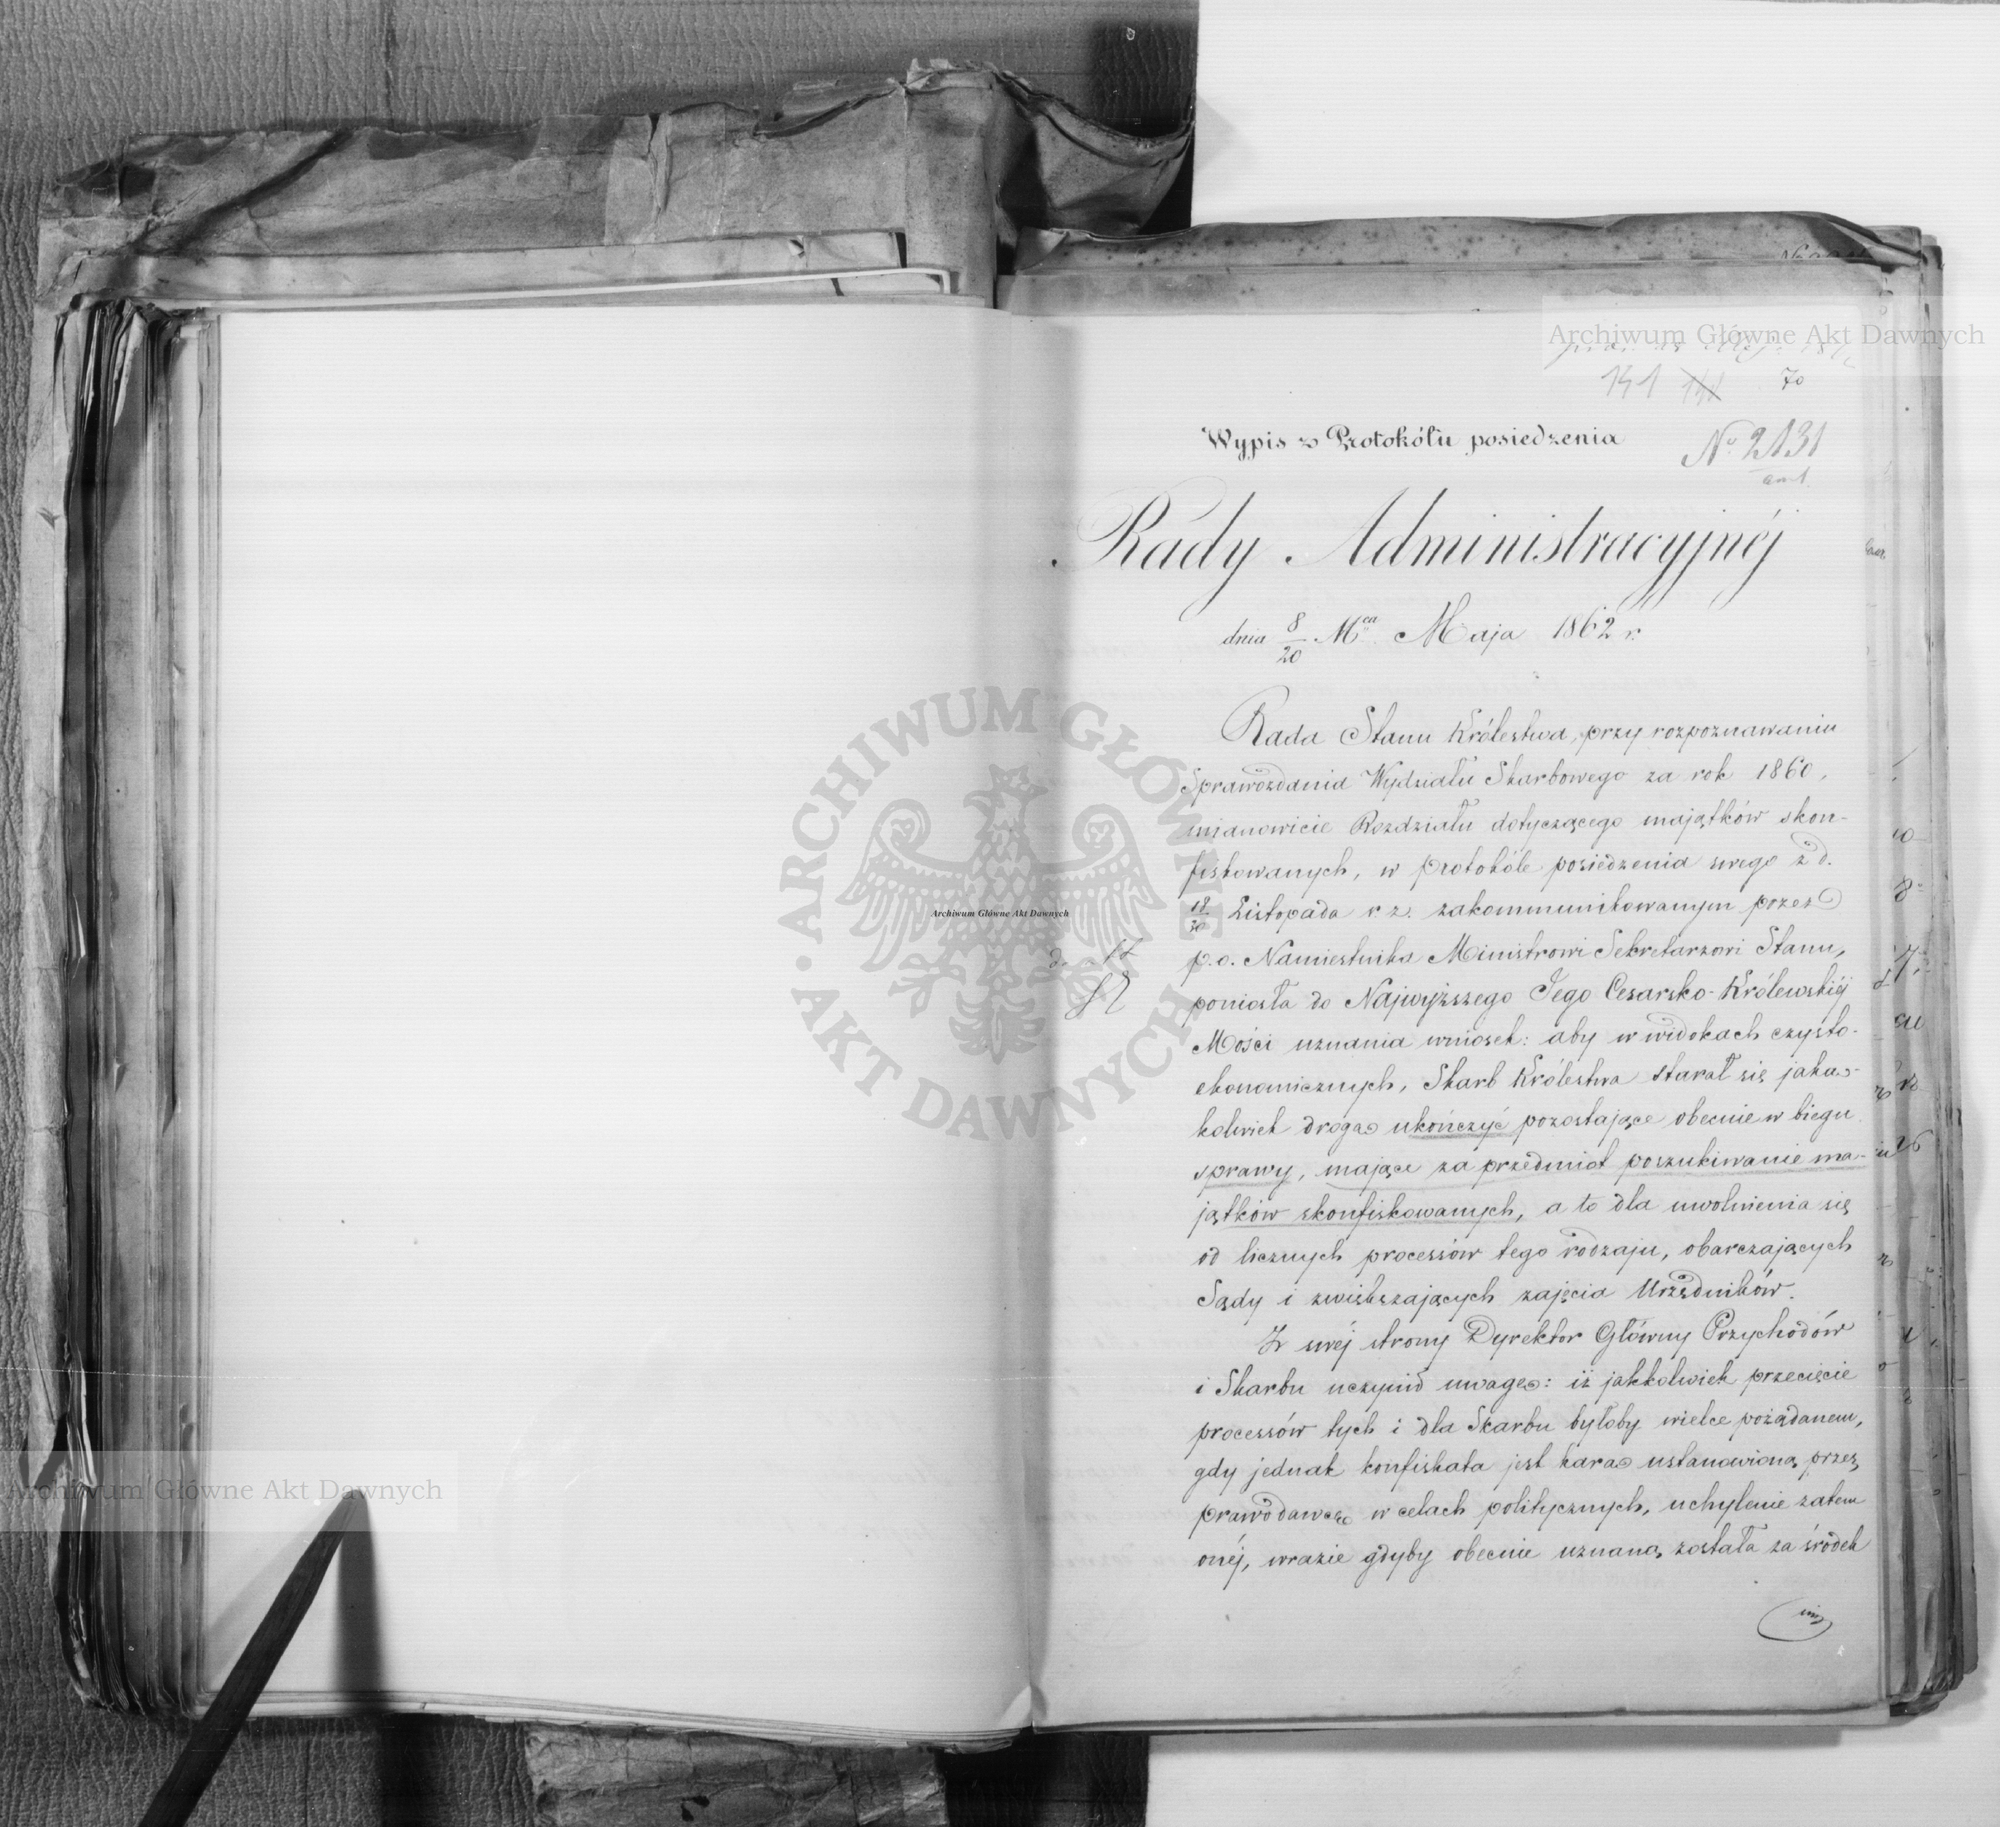 Archiwum Główne Akt Dawnych
141 70
Wypis z Protokółu posiedzenia
No 2131
Rady Administracyjnéj
dnia 8/20 Mca Maja 1862 r.
Rada Stanu Królestwa, przy rozpoznawaniu
Sprawozdania Wydziału Skarbowego za rok 1860,
mianowicie Rozdziału dotyczącego majątków skon-
fiskowanych, w protokóle posiedzenia swego z d.
18/30 Listopada r. z. zakommunikowanym przez
p.o. Namiestnika Ministrowi Sekretarzowi Stanu,
poniosła do Najwyższego Jego Cesarsko-Królewskiéj
Mości uznania wniosek: aby w widokach czysto-
ekonomicznych, Skarb Królestwa starał się jaką-
kolwiek drogą ukończyć pozostające obecnie w biegu
sprawy, mające za przedmiot poszukiwanie ma-
jątków skonfiskowanych, a to dla uwolnienia się
od licznych processów tego rodzaju, obarczających
Sądy i zwiększających zajęcia Urzędników.
Ze swéj strony Dyrektor Główny Przychodów
i Skarbu uczynił uwagę: iż jakkolwiek przecięcie
processów tych i dla Skarbu byłoby wielce pożądanem,
gdy jednak konfiskata jest karą ustanowioną przez
prawodawcę w celach politycznych, uchylenie zatem
onéj, wrazie gdyby obecnie uznaną została za środek
ARCHIWUM GŁÓWNE
AKT DAWNYCH
Archiwum Główne Akt Dawnych
Archiwum Główne Akt Dawnych